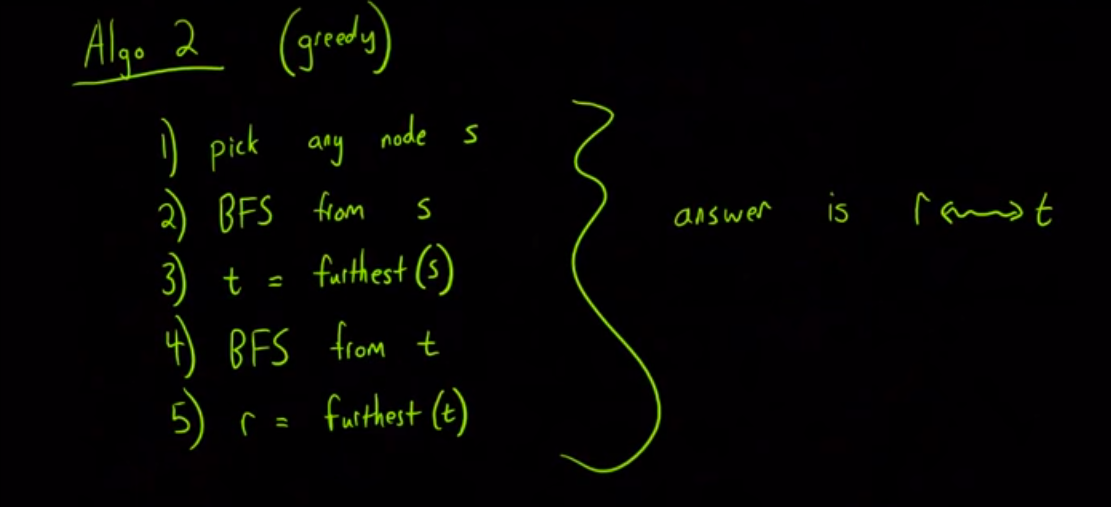 Algo 2 (greedy)
1) pick any node s
2) BFS from s
3) t = furthest(s)
4) BFS from t
5) r = furthest(t)
answer is r ⟷ t